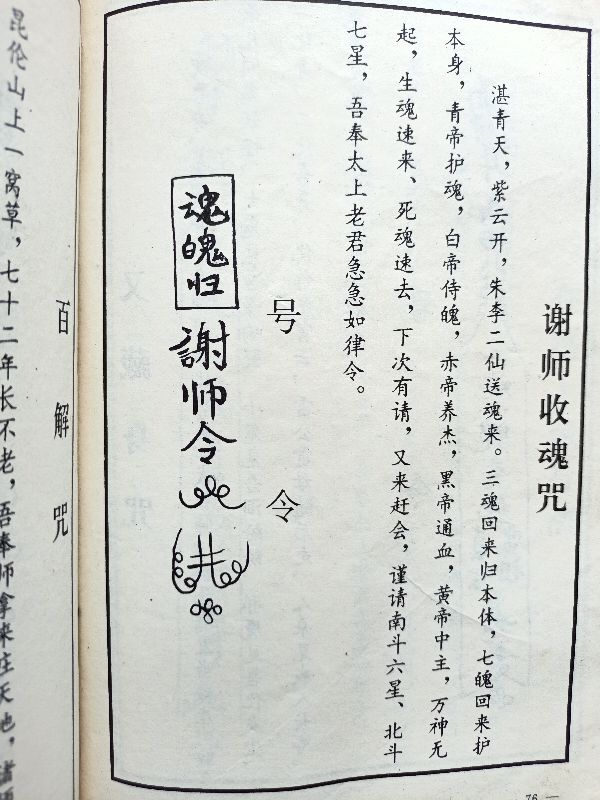 谢师收魂咒
湛青天，紫云开，朱李二仙送魂来。三魂回来归本体，七魄回来护
本身，青帝护魂，白帝侍魄，赤帝养杰，黑帝通血，黄帝中主，万神无
起，生魂速来、死魂速去，下次有请，又来赶会，谨请南斗六星、北斗
七星，吾奉太上老君急急如律令。
号令
魂魄归
謝师令
76
百解咒
昆伦山上一窝草，七十二年长不老，吾奉师拿来在天地，诸